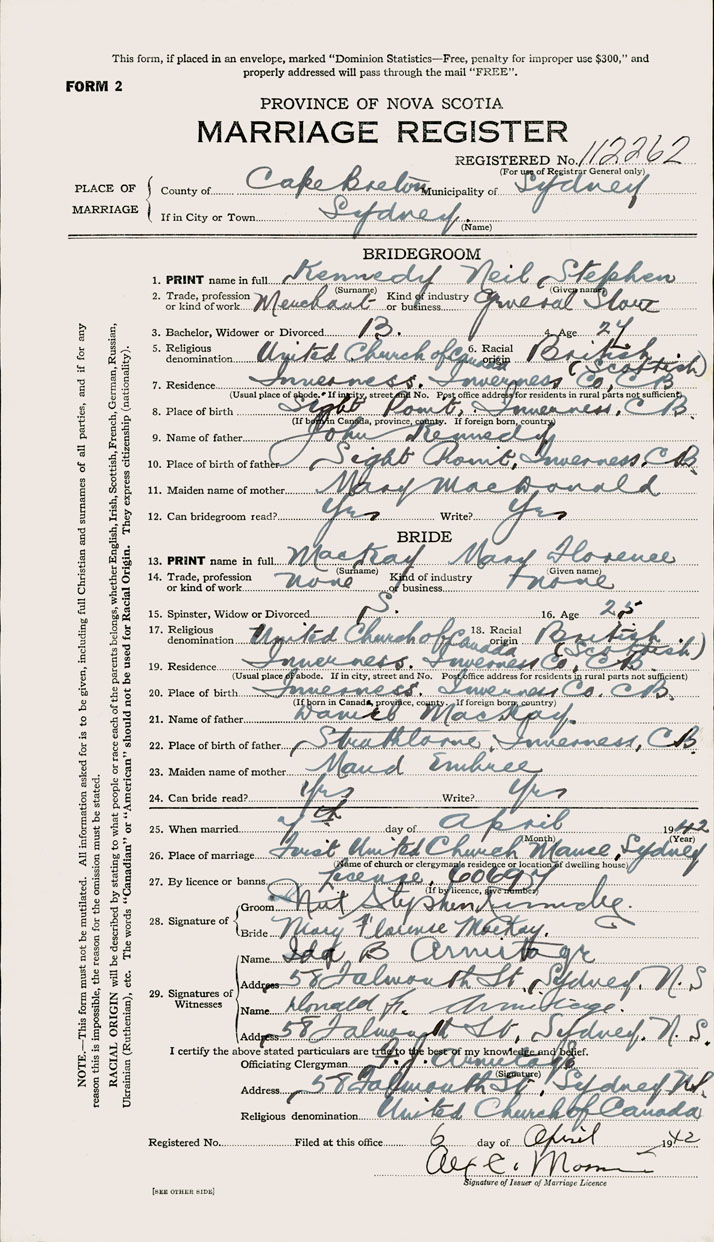 This form, if placed in an envelope, marked "Dominion Statistics—Free, penalty for improper use $300," and
properly addressed will pass through the mail "FREE".
FORM 2
PROVINCE OF NOVA SCOTIA
MARRIAGE REGISTER
REGISTERED No. 112262
(For use of Registrar General only)
PLACE OF MARRIAGE
County of Cape Breton Municipality of Sydney
If in City or Town Sydney
(Name)
BRIDEGROOM
1. PRINT name in full Kennedy Neil Stephen
(Surname) (Given name)
2. Trade, profession or kind of work Merchant Kind of industry or business General Store
3. Bachelor, Widower or Divorced B. 4. Age 27
5. Religious denomination United Church of Canada 6. Racial origin British (Scottish)
7. Residence Inverness. Inverness Co, C B
(Usual place of abode. If in city, street and No. Post office address for residents in rural parts not sufficient)
8. Place of birth Sight Point, Inverness, C B.
(If born in Canada, province, county. If foreign born, country)
9. Name of father John Kennedy
10. Place of birth of father Sight Point, Inverness, C B.
11. Maiden name of mother Mary MacDonald
12. Can bridegroom read? Yes Write? Yes
BRIDE
13. PRINT name in full MacKay Mary Florence
(Surname) (Given name)
14. Trade, profession or kind of work none Kind of industry or business none
15. Spinster, Widow or Divorced S. 16. Age 25
17. Religious denomination United Church of Canada 18. Racial origin British (Scottish)
19. Residence Inverness. Inverness Co, C B.
(Usual place of abode. If in city, street and No. Post office address for residents in rural parts not sufficient)
20. Place of birth Inverness. Inverness Co. C B.
(If born in Canada, province, county. If foreign born, country)
21. Name of father Daniel MacKay.
22. Place of birth of father Strathlorne, Inverness, C B.
23. Maiden name of mother Maud Embree
24. Can bride read? Yes Write? Yes
25. When married 7th day of April 1942
(Month) (Year)
26. Place of marriage First United Church Manse, Sydney
(Name of church or clergyman's residence or location of dwelling house)
27. By licence or banns License, 606957
(If by licence, give number)
28. Signature of
Groom Neil Stephen Kennedy.
Bride Mary Florence MacKay.
29. Signatures of Witnesses
Name Ida B Armitage
Address 58 Falmouth St, Sydney. N. S
Name Donald F. Armitage.
Address 58 Falmouth St, Sydney. N. S.
I certify the above stated particulars are true to the best of my knowledge and belief.
Officiating Clergyman Armitage
(Signature)
Address 58 Falmouth St, Sydney N.S.
Religious denomination United Church of Canada
Registered No. Filed at this office 6 day of April 1942
Signature of Issuer of Marriage Licence
[SEE OTHER SIDE]
NOTE.—This form must not be mutilated. All information asked for is to be given, including full Christian and surnames of all parties, and if for any
reason this is impossible, the reason for the omission must be stated.
RACIAL ORIGIN will be described by stating to what people or race each of the parents belongs, whether English, Irish, Scottish, French, German, Russian,
Ukrainian (Ruthenian), etc. The words "Canadian" or "American" should not be used for Racial Origin. They express citizenship (nationality).